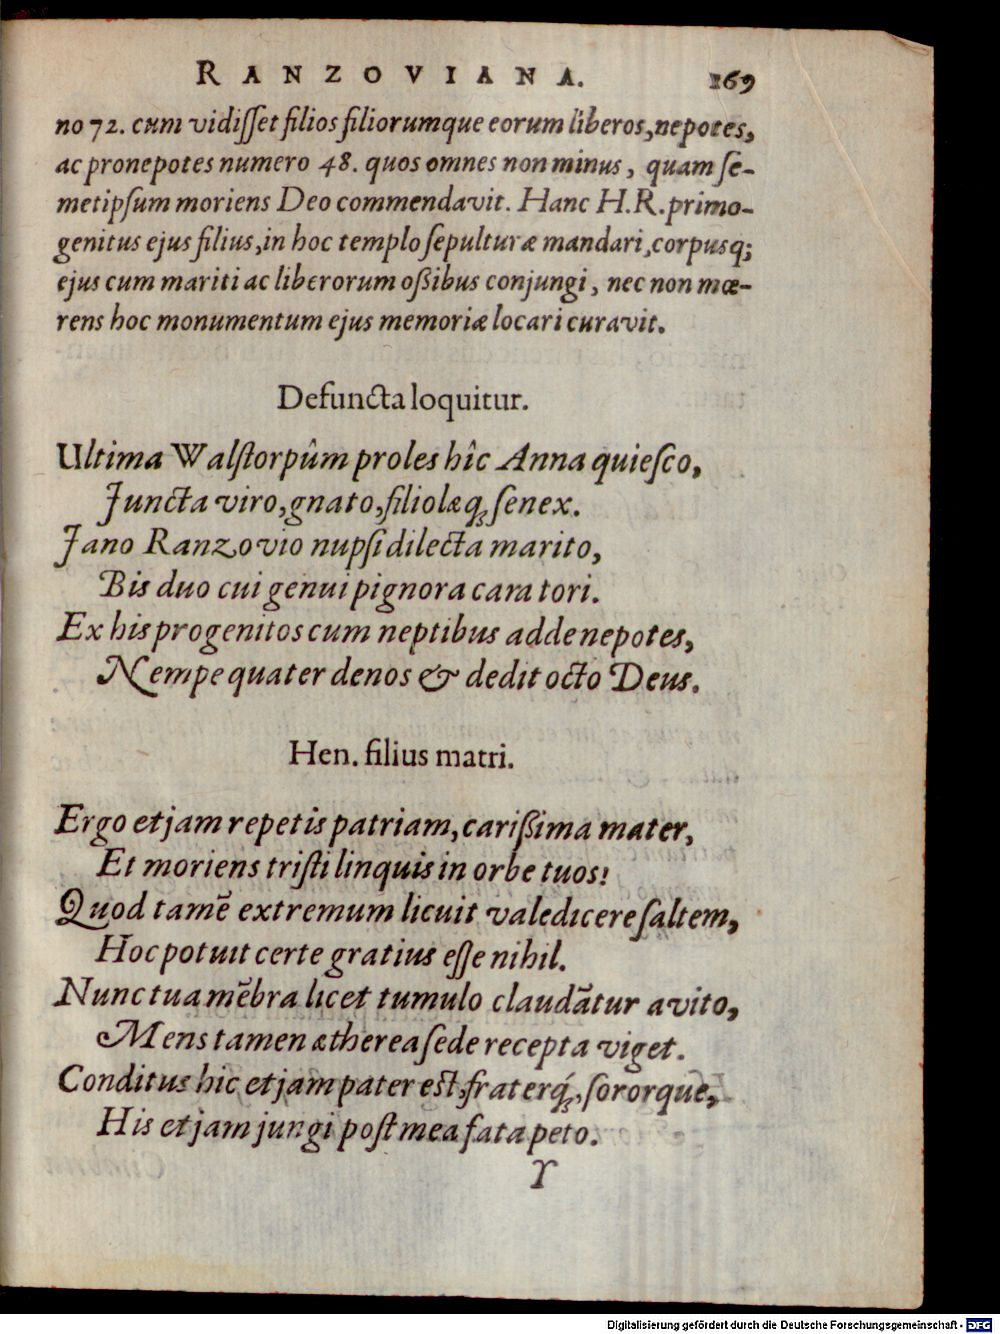 RANZOVIANA. 169
no 72. cum vidiſſet filios filiorumque eorum liberos, nepotes,
ac pronepotes numero 48. quos omnes non minus, quam ſe-
metipſum moriens Deo commendavit. Hanc H.R. primo-
genitus ejus filius, in hoc templo ſepulturæ mandari, corpusq;
ejus cum mariti ac liberorum oſsibus conjungi, nec non mœ-
rens hoc monumentum ejus memoriæ locari curavit.
Defuncta loquitur.
Ultima Walſtorpûm proles hîc Anna quieſco,
Juncta viro, gnato, filiolæq; ſenex.
Jano Ranzovio nupſi dilecta marito,
Bis duo cui genui pignora cara tori.
Ex his progenitos cum neptibus adde nepotes,
Nempe quater denos & dedit octo Deus.
Hen. filius matri.
Ergo etjam repetis patriam, cariſsima mater,
Et moriens triſti linquis in orbe tuos!
Quod tamē extremum licuit valedicere ſaltem,
Hoc potuit certe gratius eſſe nihil.
Nunc tua mēbra licet tumulo claudātur avito,
Mens tamen ætherea ſede recepta viget.
Conditus hic etjam pater eſt, fraterq́;, ſororque,
His etjam jungi poſt mea fata peto.
Y
Digitalisierung gefördert durch die Deutsche Forschungsgemeinschaft - DFG